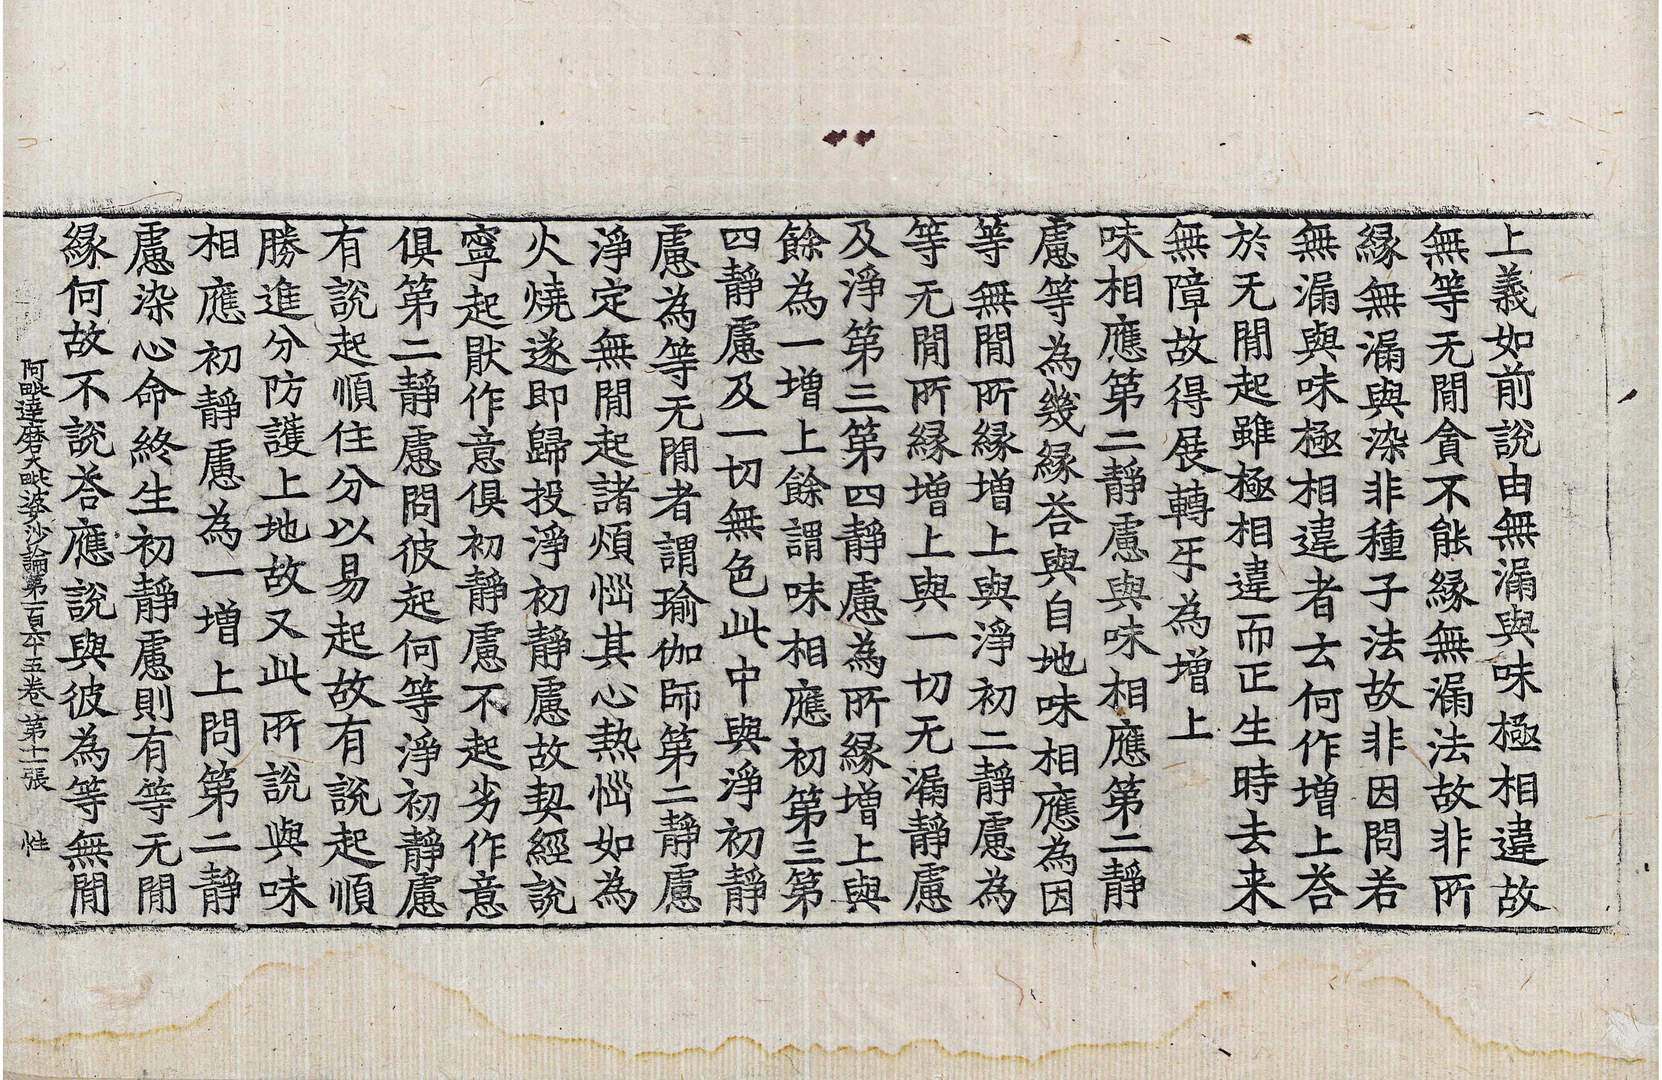 上義如前說由無漏與味極相違故
無等无閒貪不能緣無漏法故非所
緣無漏與染非種子法故非因問若
無漏與味極相違者去何作增上荅
於无閒起雖極相違而正生時去来
無障故得展轉㸦為增上
味相應第二靜慮與味相應第二靜
慮等為幾緣荅與自地味相應為因
等無閒所緣增上與淨初二靜慮為
等无閒所緣增上與一切无漏靜慮
及淨第三第四靜慮為所緣增上與
餘為一增上餘謂味相應初第三第
四靜慮及一切無色此中與淨初靜
慮為等无閒者謂瑜伽師第二靜慮
淨定無閒起諸煩惱其心熱惱如為
火燒遂即歸投淨初靜慮故契經說
寧起猒作意俱初靜慮不起劣作意
俱第二靜慮問彼起何等淨初靜慮
有說起順住分以易起故有說起順
勝進分防護上地故又此所說與味
相應初靜慮為一增上問第二靜
慮染心命終生初靜慮則有等无閒
緣何故不說荅應說與彼為等無閒
阿毗達磨大毗婆沙論第一百六十五卷 第十一張 性